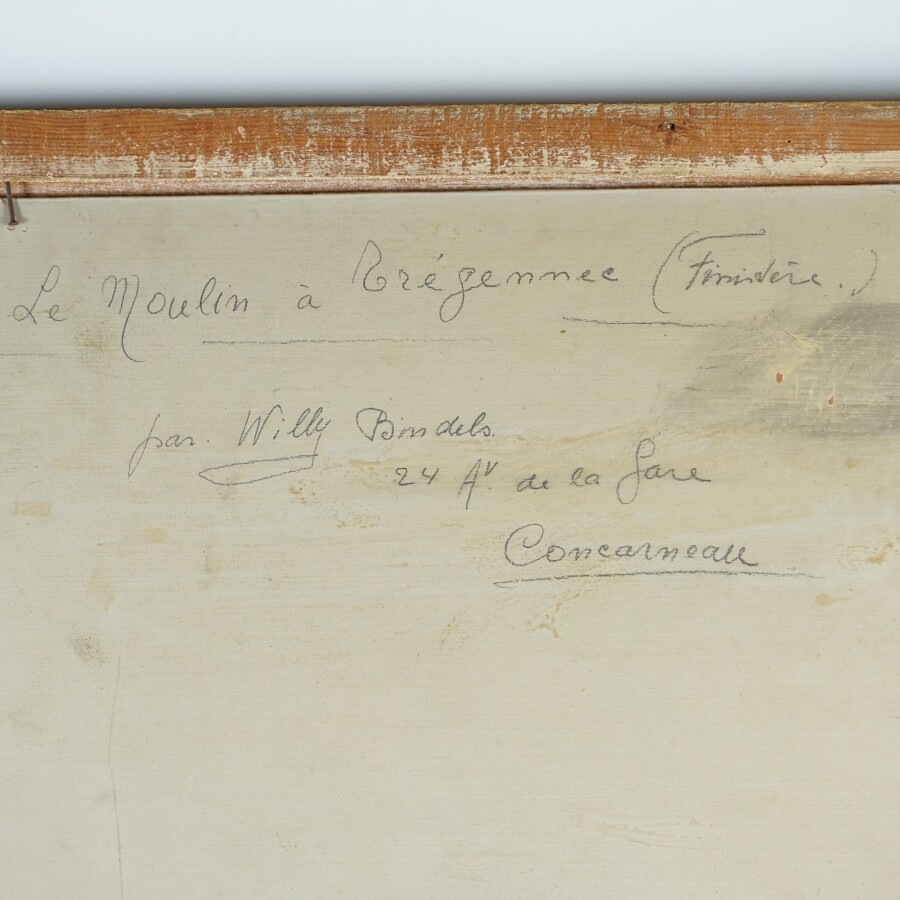 Le Moulin à Trégennec (Finistère.)
par Willy Bindels.
24 Av. de la Gare
Concarneau